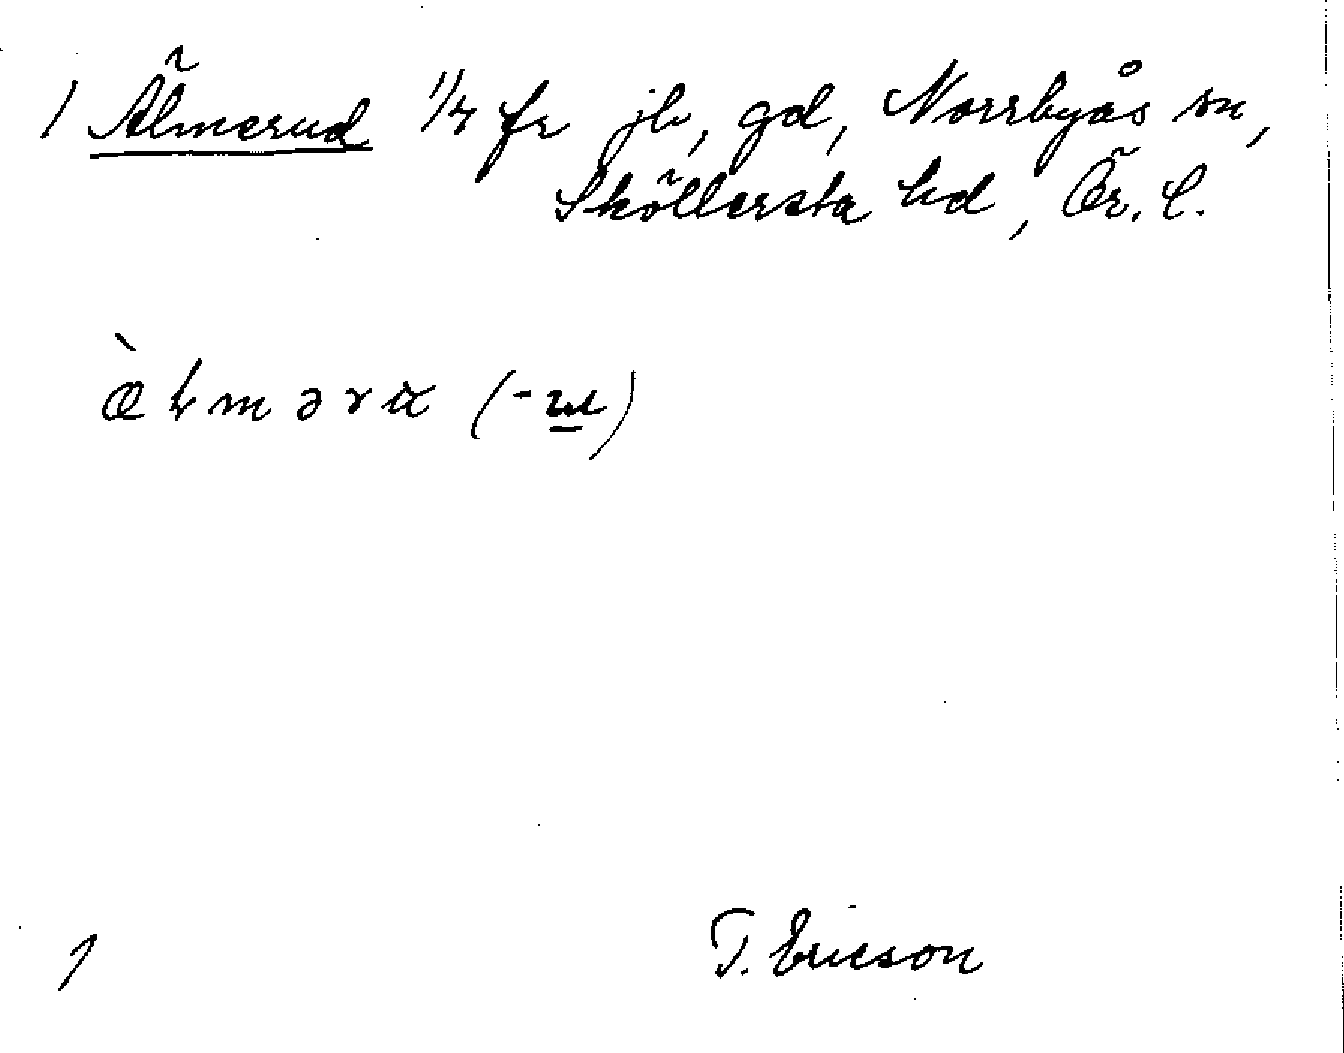 1 Älmerud 1/4 fr jb, gd, Norrbyås sn,
Sköllersta hd, Ör. l.
T. Ericson
1